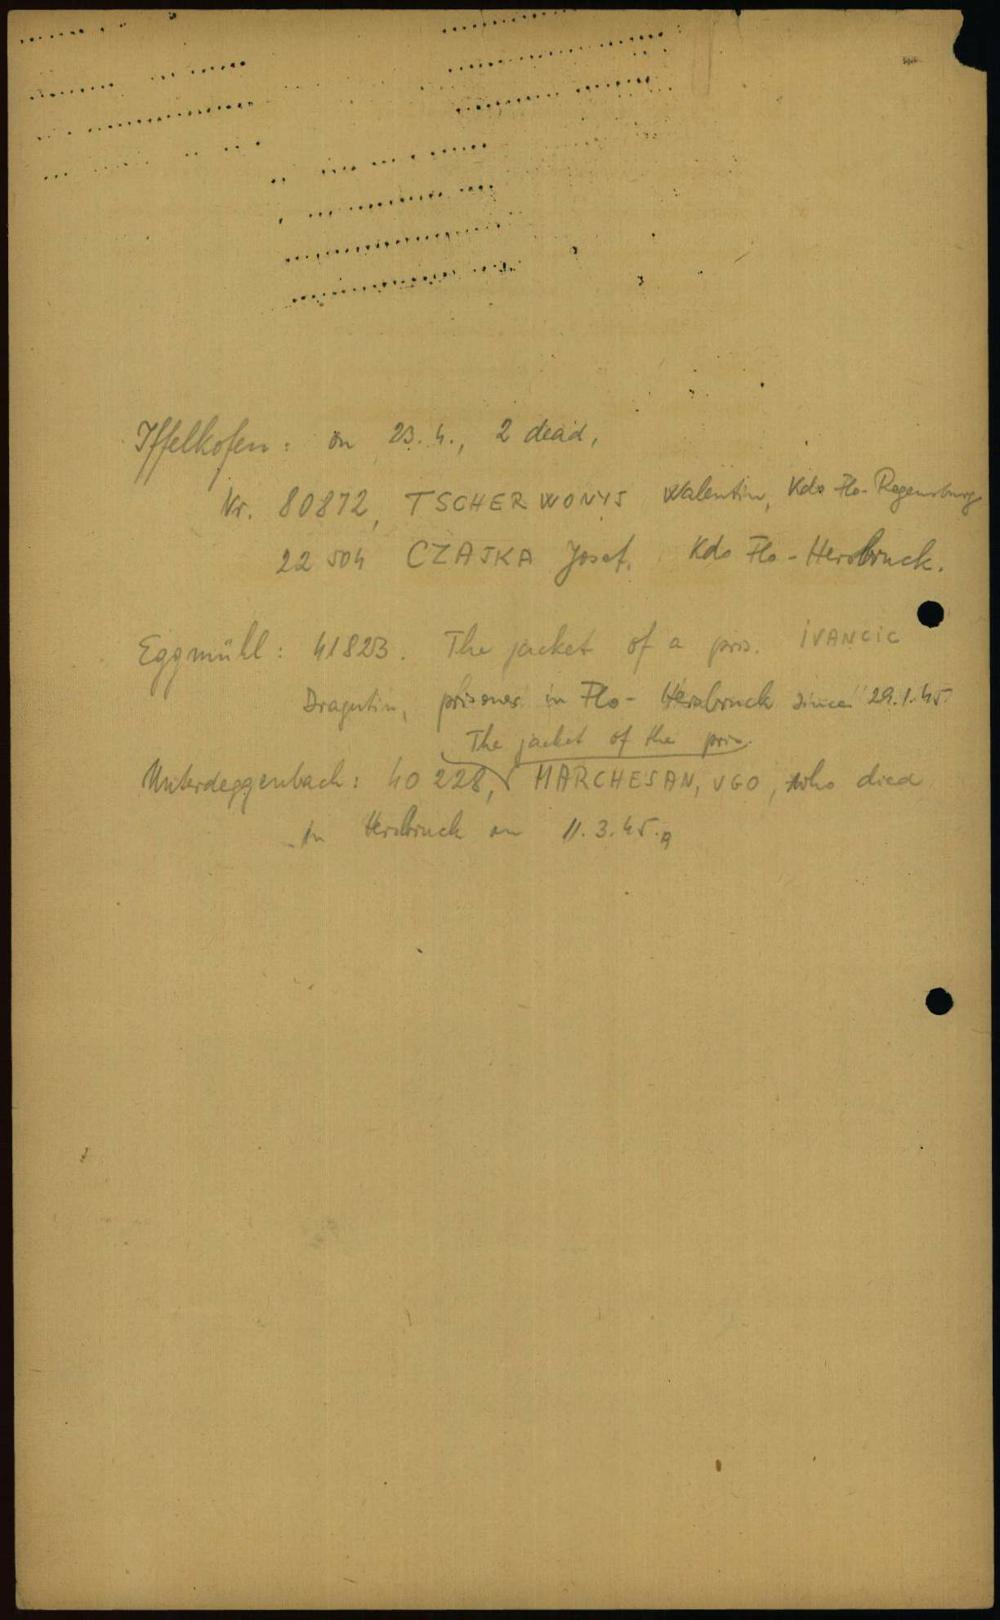 Iffelkofen: on 23.4., 2 dead,
Nr. 80872, TSCHERWONYS Walentin, Kdo Flo-Regensburg
22 504 CZAJKA Josef, Kdo Flo-Hersbruck.
Eggmühl: 41823. The jacket of a pris. IVANCIC
Dragutin, prisoner in Flo-Hersbruck since 29.1.45.
The jacket of the pris.
Unterdeggenbach: 40 228, MARCHESAN, UGO, who died
in Hersbruck on 11.3.45.